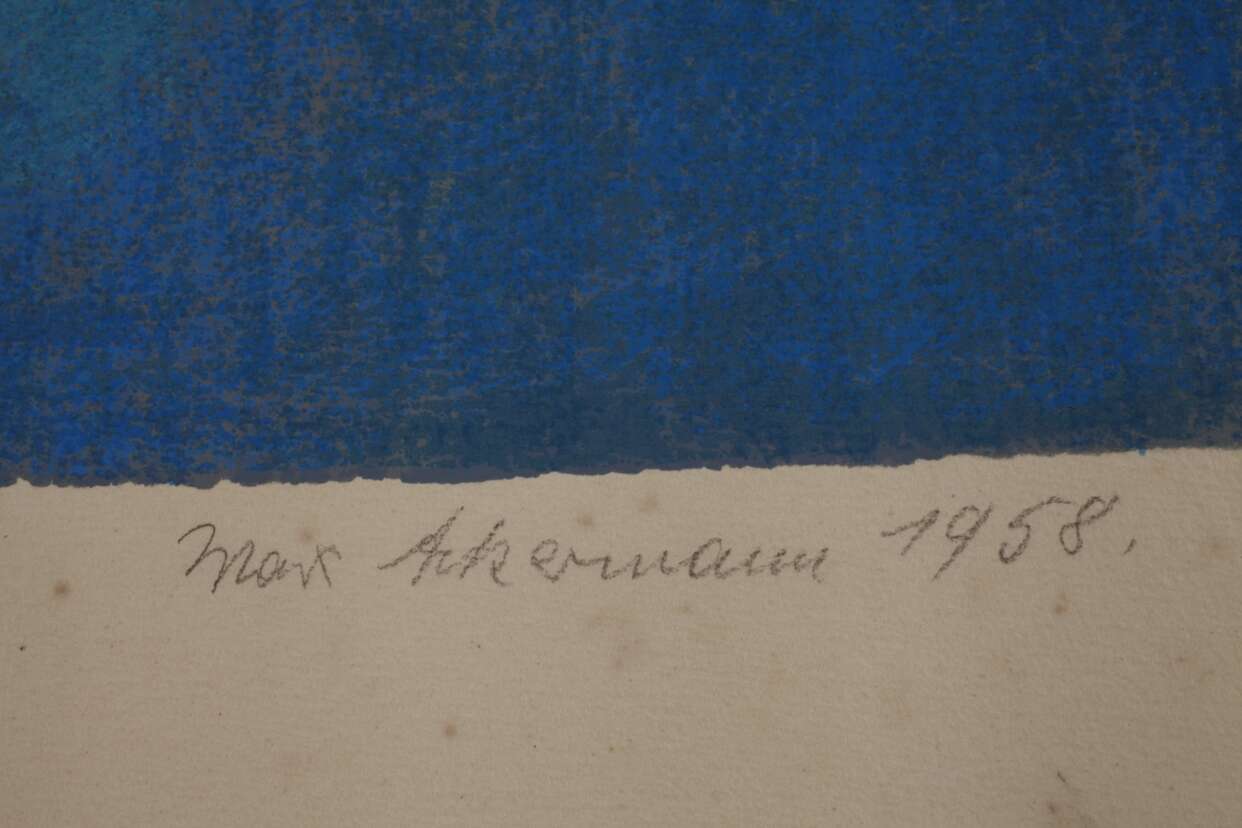 Max Ackermann 1958.